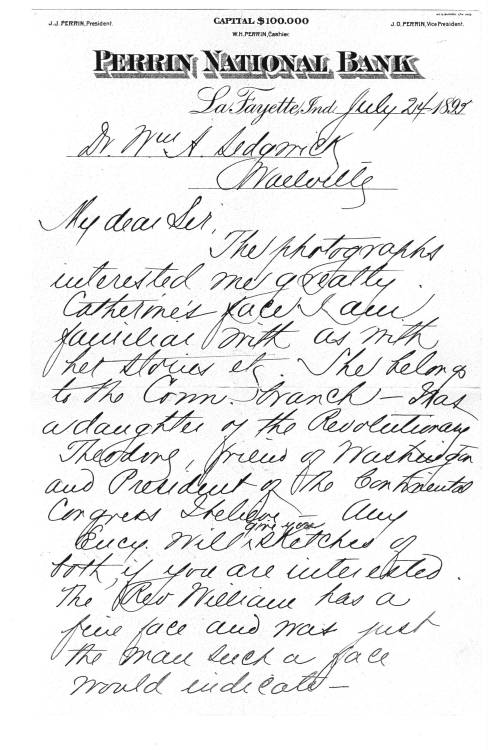 J.J. PERRIN, President.
CAPITAL $100.000
J.O. PERRIN, Vice President.
W.H. PERRIN, Cashier.
PERRIN NATIONAL BANK
La Fayette, Ind. July 24 189
Dr. Wm A. Sedgwick
My dear Sir,
The photographs
interested me greatly.
Catherine's face I am
familiar with as with
her stories etc. She belongs
to the Conn. branch – Was
a daughter of the Revolutionary
Theodore, friend of Washington
and President of the Continental
Congress I believe – Any
Ency. will give you sketches of
both, if you are interested.
The Rev William has a
fine face and was just
the man such a face
would indicate –